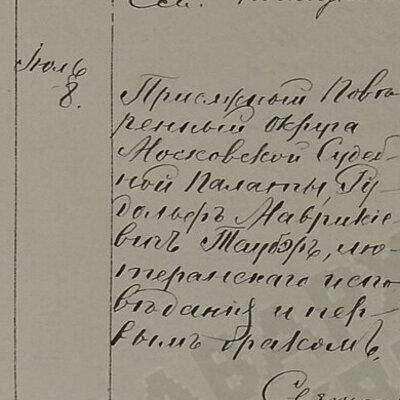 Іюль
8.
Присяжный Повѣ-
ренный округа
Московской Судеб-
ной Палаты, Ру-
дольфъ Маврикіе-
вичъ Тауберъ, лю-
теранскаго испо-
вѣданія и пер-
вымъ бракомъ.